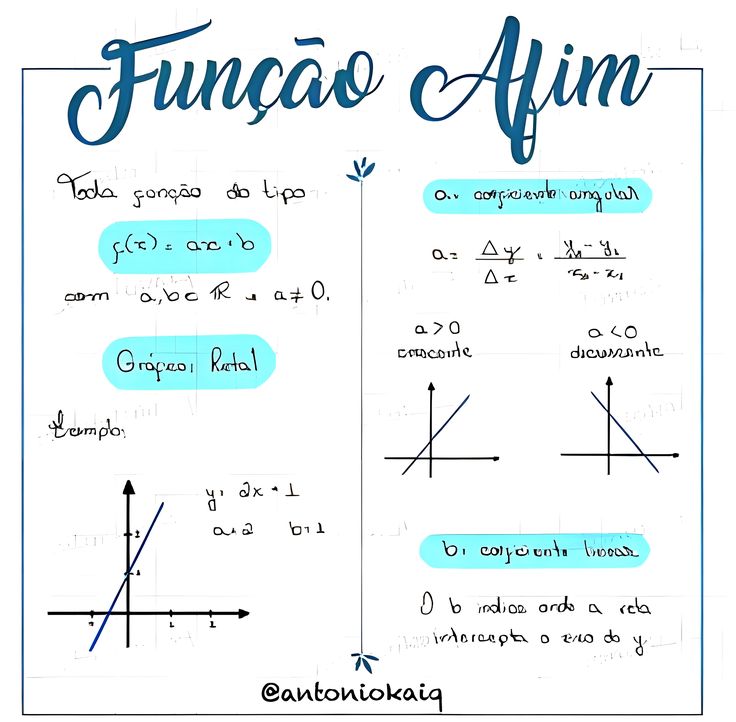 Função Afim
Toda função do tipo
f(x) = ax + b
com a, b ∈ ℝ e a ≠ 0.
Gráfico: Reta!
Exemplo:
y = 2x + 1
a = 2 b = 1
a: coeficiente angular
a = Δy / Δx =
a > 0
crescente
a < 0
decrescente
b: coeficiente linear
O b indica onde a reta
intercepta o eixo do y
@antoniokaiq